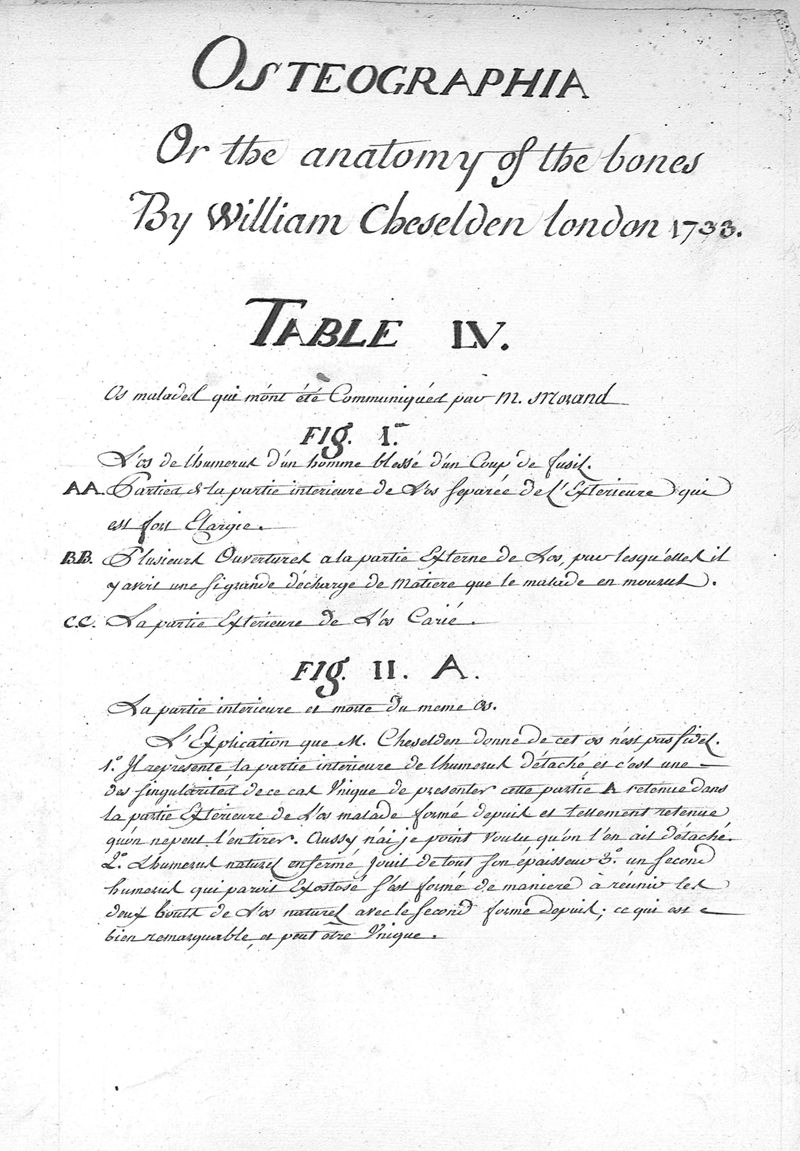 OSTEOGRAPHIA
Or the anatomy of the bones
By William Cheselden london 1733.
TABLE LV.
Os malades qui m'ont été Communiqués par M. Morand
FIG. I.re
L'os de l'humerus d'un homme blessé d'un Coup de fusil.
AA. Parties de la partie interieure de L'os separée de L'Exterieure qui
est fort Elargie.
BB. Plusieurs Ouvertures a la partie Externe de L'os, par lesqu'elles il
y avoit une si grande décharge de matiere que le malade en mourut.
C.C. La partie Exterieure de L'os Carié.
FIG. II. A.
La partie interieure et morte du meme os.
L'Explication que M. Cheselden donne de cet os n'est pas fidel.
1.º Il represente la partie interieure de l'humerus détaché et c'est une
des singularités de ce cas Unique de presenter cette partie A retenue dans
la partie Exterieure de L'os malade formé depuis et tellement retenue
qu'on ne peut l'en tirer. Aussy n'ai je point voulu qu'on l'en ait détaché.
2.º L'humerus naturel enfermé jouit de tout son épaisseur 3.º un second
humerus qui paroit Exostosé s'est formé de maniere à réunir les
deux bouts de L'os naturel avec le second formé depuis; ce qui est
bien remarquable, et peut être Unique.